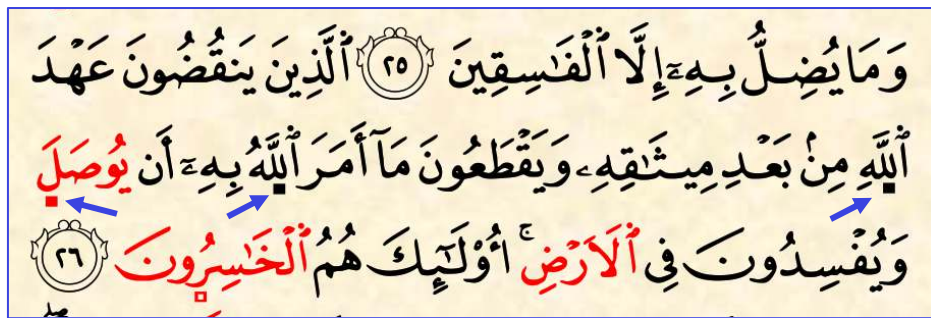 وَمَا يُضِلُّ بِهِۦٓ إِلَّا ٱلْفَٰسِقِينَ ٢٥ ٱلَّذِينَ يَنقُضُونَ عَهْدَ
ٱللَّهِ مِنۢ بَعْدِ مِيثَٰقِهِۦ وَيَقْطَعُونَ مَآ أَمَرَ ٱللَّهُ بِهِۦٓ أَن يُوصَلَ
وَيُفْسِدُونَ فِي ٱلَارْضِۚ أُوْلَٰٓئِكَ هُمُ ٱلْخَٰسِرُونَ ٢٦